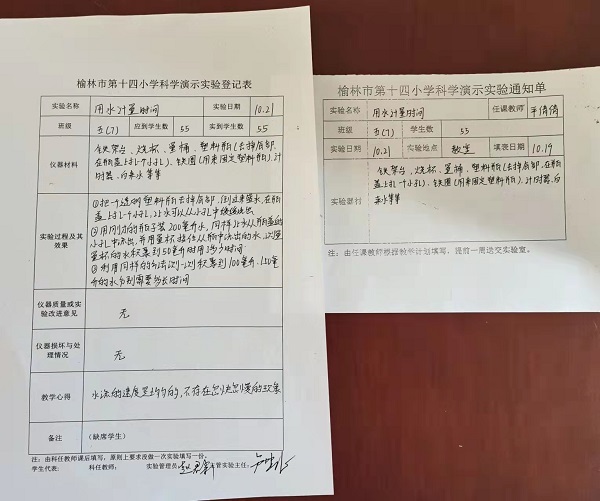 榆林市第十四小学科学演示实验登记表
实验名称 用水计量时间 实验日期 10.21
班级 五(7) 应到学生数 55 实到学生数 55
仪器材料
铁架台、烧杯、量桶、塑料瓶(去掉底部,
在瓶盖上扎一个小孔)、铁圈(用来固定塑料瓶)、计
时器、自来水等等
实验过程及其效果
①把一个透明塑料瓶去掉底部,倒过来盛水,在瓶
盖上扎一个小孔,让水可以从小孔中慢慢流出
②用刚才的瓶子装200毫升水,同样让水从瓶盖的
小孔中流出,并用量杯接住从瓶中流出的水,
量杯的水积累到50毫升时用了多少时间
③利用同样的方法测一测积累到100毫升、150毫
升的水分别需要多长时间
仪器质量或实验改进意见 无
仪器损坏与处理情况 无
教学心得 水流的速度是均匀的,不存在忽快忽慢的现象
备注 (缺席学生)
注:由科任教师课后填写,原则上要求没做一次实验填写一份。
学生代表: 科任教师: 实验管理员: 主管实验主任:
榆林市第十四小学科学演示实验通知单
实验名称 用水计量时间 任课教师 平倩倩
班级 五(7) 学生数 55
实验日期 10.21 实验地点 教室 填表日期 10.19
实验器材
铁架台、烧杯、量桶、塑料瓶(去掉底部、在瓶
盖上扎一个小孔)、铁圈(用来固定塑料瓶)、计时器、自
来水等等
注:由任课教师根据教学计划填写,提前一周送交实验室。